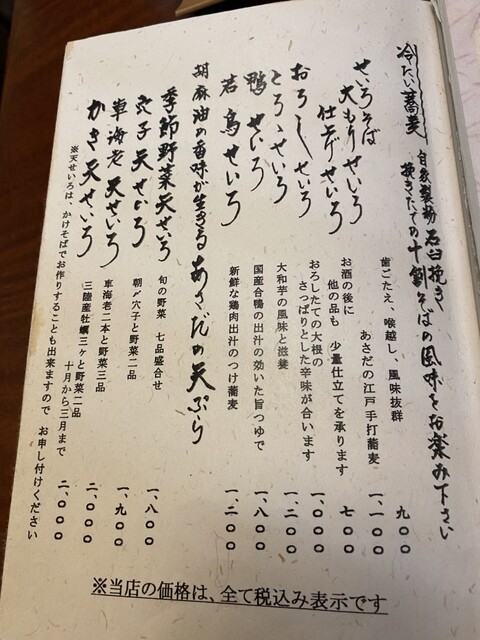 冷たい蕎麦 自家製粉 石臼挽き
挽きたての十割そばの風味をお楽み下さい
せいろそば 歯ごたえ、喉越し、風味抜群 九〇〇
大もりせいろ あさだの江戸手打蕎麦 一、一〇〇
仕上げせいろ お酒の後に 七〇〇
他の品も 少量仕立てを承ります
おろしせいろ おろしたての大根の 一、〇〇〇
さっぱりとした辛味が合います
とろろせいろ 大和芋の風味と滋養 一、二〇〇
鴨せいろ 国産合鴨の出汁の効いた旨つゆで 一、八〇〇
若鳥せいろ 新鮮な鶏肉出汁のつけ蕎麦 一、二〇〇
胡麻油の香味が生きる あさだの天ぷら
季節野菜天せいろ 旬の野菜 七品盛合せ 一、八〇〇
穴子天せいろ 朝〆穴子と野菜二品 一、九〇〇
車海老天せいろ 車海老二本と野菜三品 二、〇〇〇
かき天せいろ 三陸産牡蠣三ヶと野菜二品 二、〇〇〇
十月から三月まで
※天せいろは、かけそばでお作りすることも出来ますので お申し付けください
※当店の価格は、全て税込み表示です